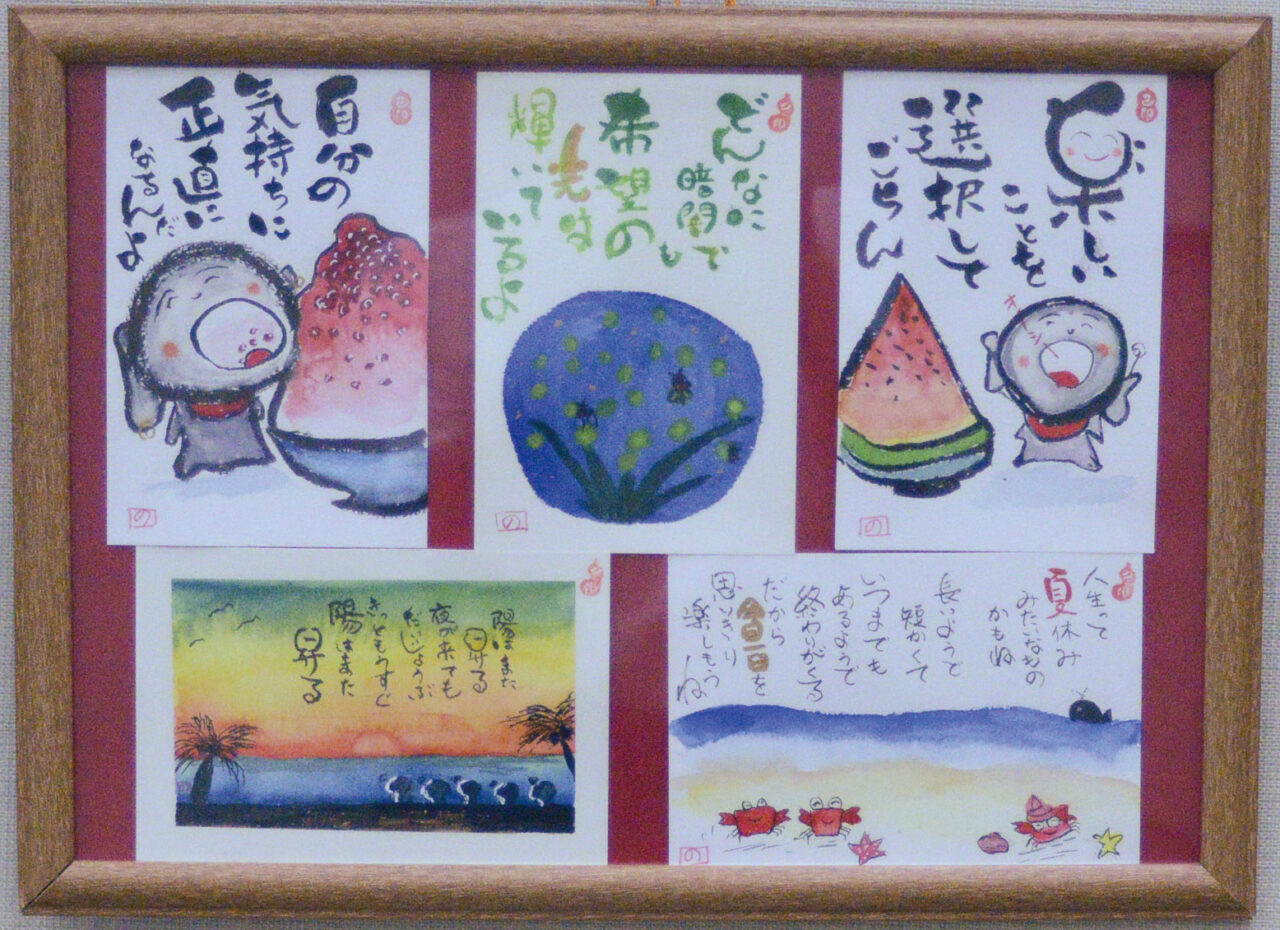 自分の
気持ちに
正直に
なるんだよ
の
どんなに
暗闇でも
希望の
光は
輝いて
いるよ
の
楽しい
ことを
選択して
ごらん
の
陽はまた
昇る
夜が来ても
だいじょうぶ
きっともうすぐ
陽はまた
昇る
人生って
夏休み
みたいなもの
かもね
長いようで
短かくて
いつまでも
あるようで
終わりがくる
だから
今日一日を
思いきり
楽しもうね
の